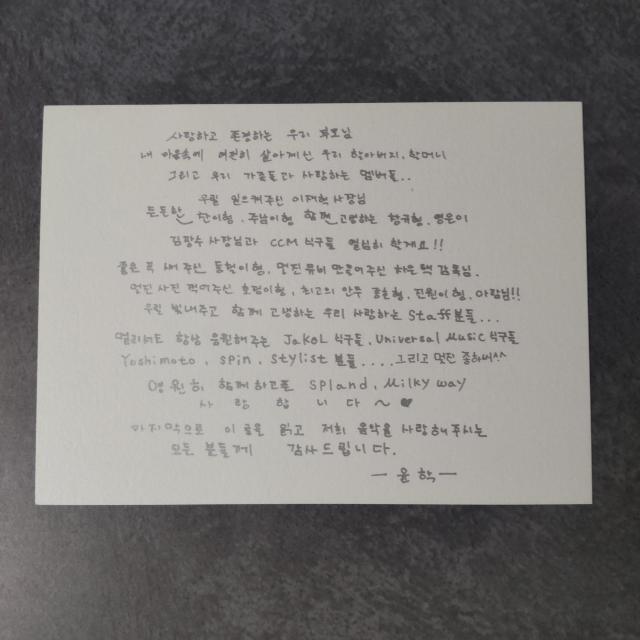 사랑하고 존경하는 우리 부모님
내 마음속에 여전히 살아계신 우리 할아버지, 할머니
그리고 우리 가족들과 사랑하는 멤버들..
우릴 믿으켜주신 사장님
든든한 주남이형, 함께 고생하는 형규형, 영은이
김광수 사장님과 CCM 식구들 열심히 할게요!!
좋은 곡 써 주신 동혁이형, 멋진 뮤비 만들어주신 감독님.
멋진 사진 찍어주신 호점이형, 최고의 안무 진원이형, 아람님!!
우릴 빛내주고 함께 고생하는 우리 사랑하는 Staff분들...
멀리서도 항상 응원해주는 JaKoL 식구들, Universal Music 식구들
Yoshimoto, Spin, Stylist 분들.... 그리고 멋진 종하버^^
영원히 함께하고픈 SPland, Milky way
사랑합니다~♥
마지막으로 이 글을 읽고 저희 음악을 사랑해주시는
모든 분들께 감사드립니다.
ㅡ윤학ㅡ